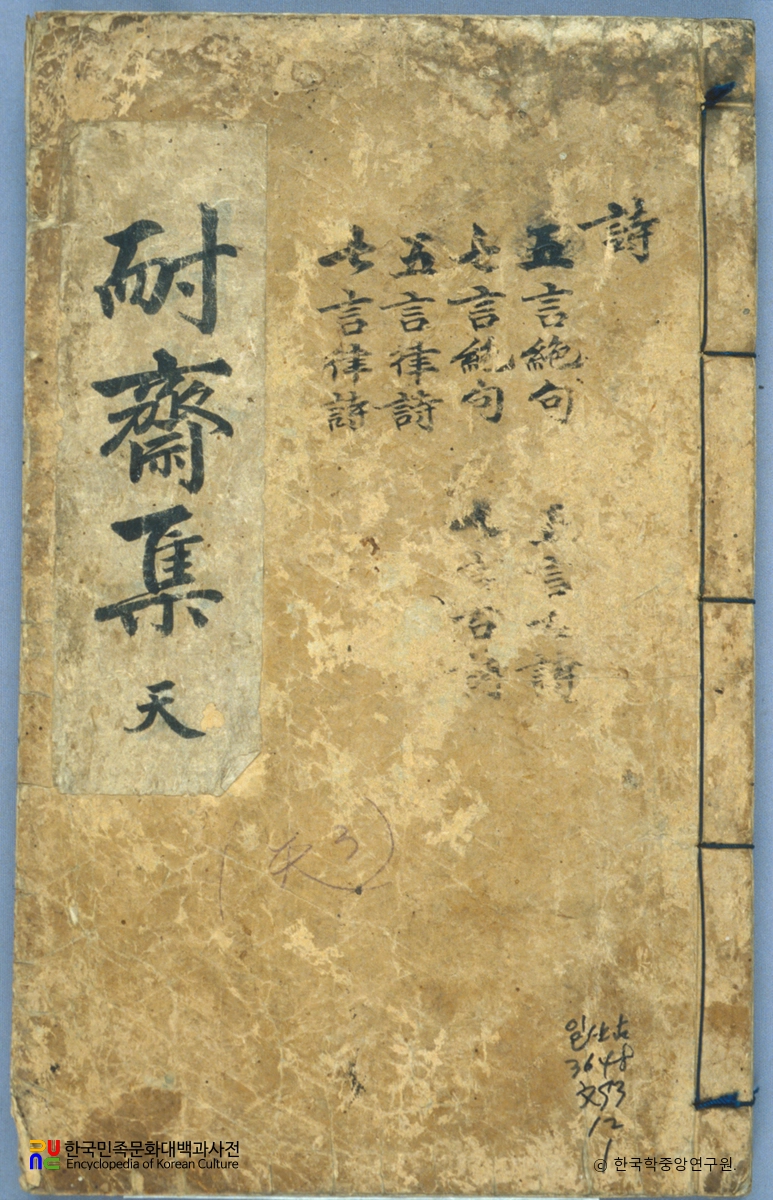 詩
五言絶句
七言絶句
五言律詩
七言律詩
五言古詩
七言古詩
耐齋集 天
(天3)
일사古
3648
文93
12
1
한국민족문화대백과사전
Encyclopedia of Korean Culture
© 한국학중앙연구원.